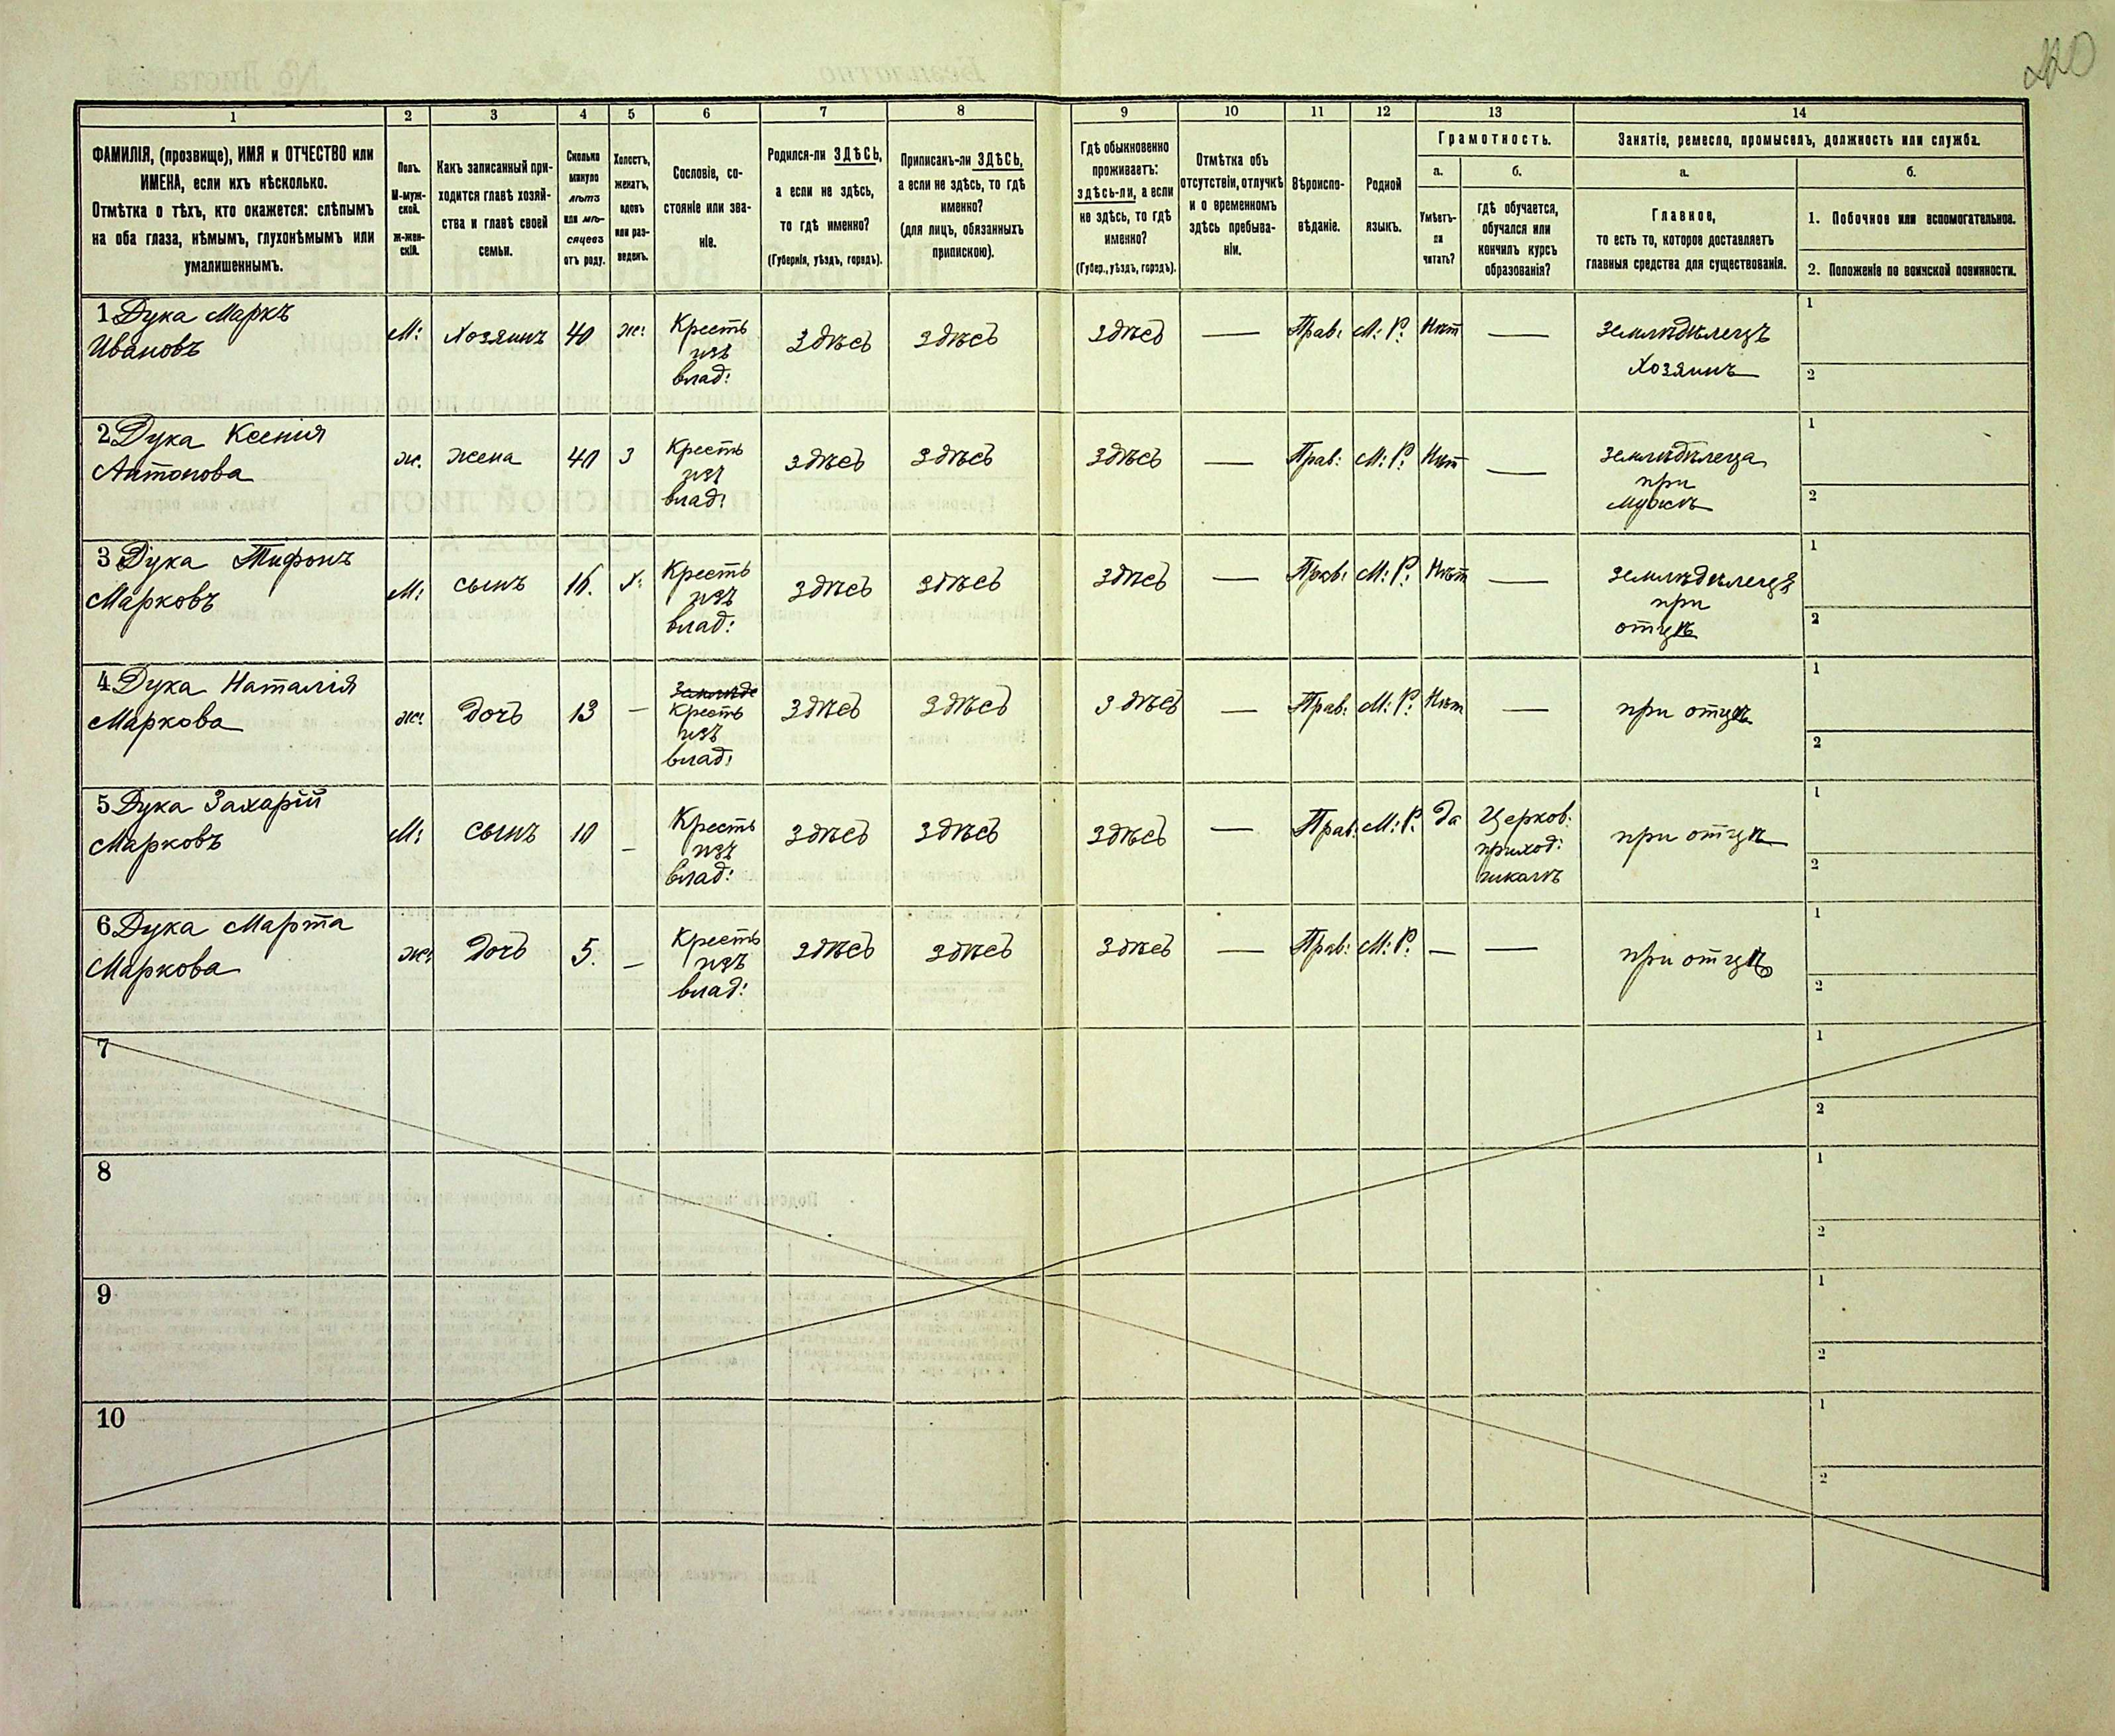 220
1 2 3 4 5 6 7 8 9 10 11 12 13 14
ФАМИЛІЯ, (прозвище), ИМЯ и ОТЧЕСТВО или
ИМЕНА, если ихъ нѣсколько.
Отмѣтка о тѣхъ, кто окажется: слѣпымъ
на оба глаза, нѣмымъ, глухонѣмымъ или
умалишеннымъ.
Полъ.
М-муж-
ской.
ж-жен-
скій.
Какъ записанный при-
ходится главѣ хозяй-
ства и главѣ своей
семьи.
Сколько
минуло
лѣтъ
или мѣ-
сяцевъ
отъ роду.
Холостъ,
женатъ,
вдовъ
или раз-
веденъ.
Сословіе, со-
стояніе или зва-
ніе.
Родился-ли ЗДѢСЬ,
а если не здѣсь,
то гдѣ именно?
(Губернія, уѣздъ, городъ).
Приписанъ-ли ЗДѢСЬ,
а если не здѣсь, то гдѣ
именно?
(для лицъ, обязанныхъ
припискою).
Гдѣ обыкновенно
проживаетъ:
здѣсь-ли, а если
не здѣсь, то гдѣ
именно?
(Губер., уѣздъ, городъ).
Отмѣтка объ
отсутствіи, отлучкѣ
и о временномъ
здѣсь пребыва-
ніи.
Вѣроиспо-
вѣданіе.
Родной
языкъ.
Грамотность.
а.
Умѣетъ-
ли
читать?
б.
гдѣ обучается,
обучался или
кончилъ курсъ
образованія?
Занятіе, ремесло, промыселъ, должность или служба.
а.
Главное,
то есть то, которое доставляетъ
главныя средства для существованія.
б.
1. Побочное или вспомогательное.
2. Положеніе по воинской повинности.
1 Дука Маркъ
Ивановъ
М: Хозяинъ 40 ж:
Кресть
изъ
влад:
Здѣсь Здѣсь Здѣсь — Прав: М: Р: Нѣт —
земледѣлецъ
Хозяинъ
1
2
2 Дука Ксенія
Антонова
ж. жена 40 З
Кресть
изъ
влад:
здѣсь здѣсь здѣсь — Прав: М: Р: Нѣт —
земледѣлеца
при
мужѣ
1
2
3 Дука Тифонъ
Марковъ
М: сынъ 16. Х:
Кресть
изъ
влад:
здѣсь здѣсь здѣсь — Прав: М: Р: Нѣт —
земледѣлецъ
при
отцѣ
1
2
4 Дука Наталія
Маркова
ж: дочъ 13 —
Кресть
изъ
влад:
здѣсь здѣсь здѣсь — Прав: М: Р: Нѣт —
при отцѣ
1
2
5 Дука Захарій
Марковъ
М: сынъ 10 —
Кресть
изъ
влад:
здѣсь здѣсь здѣсь — Прав: М: Р: Да
Церков:
приход:
школѣ
при отцѣ
1
2
6 Дука Марта
Маркова
ж: дочъ 5. —
Кресть
изъ
влад:
здѣсь здѣсь здѣсь — Прав: М: Р: — —
при отцѣ
1
2
7
1
2
8
1
2
9
1
2
10
1
2